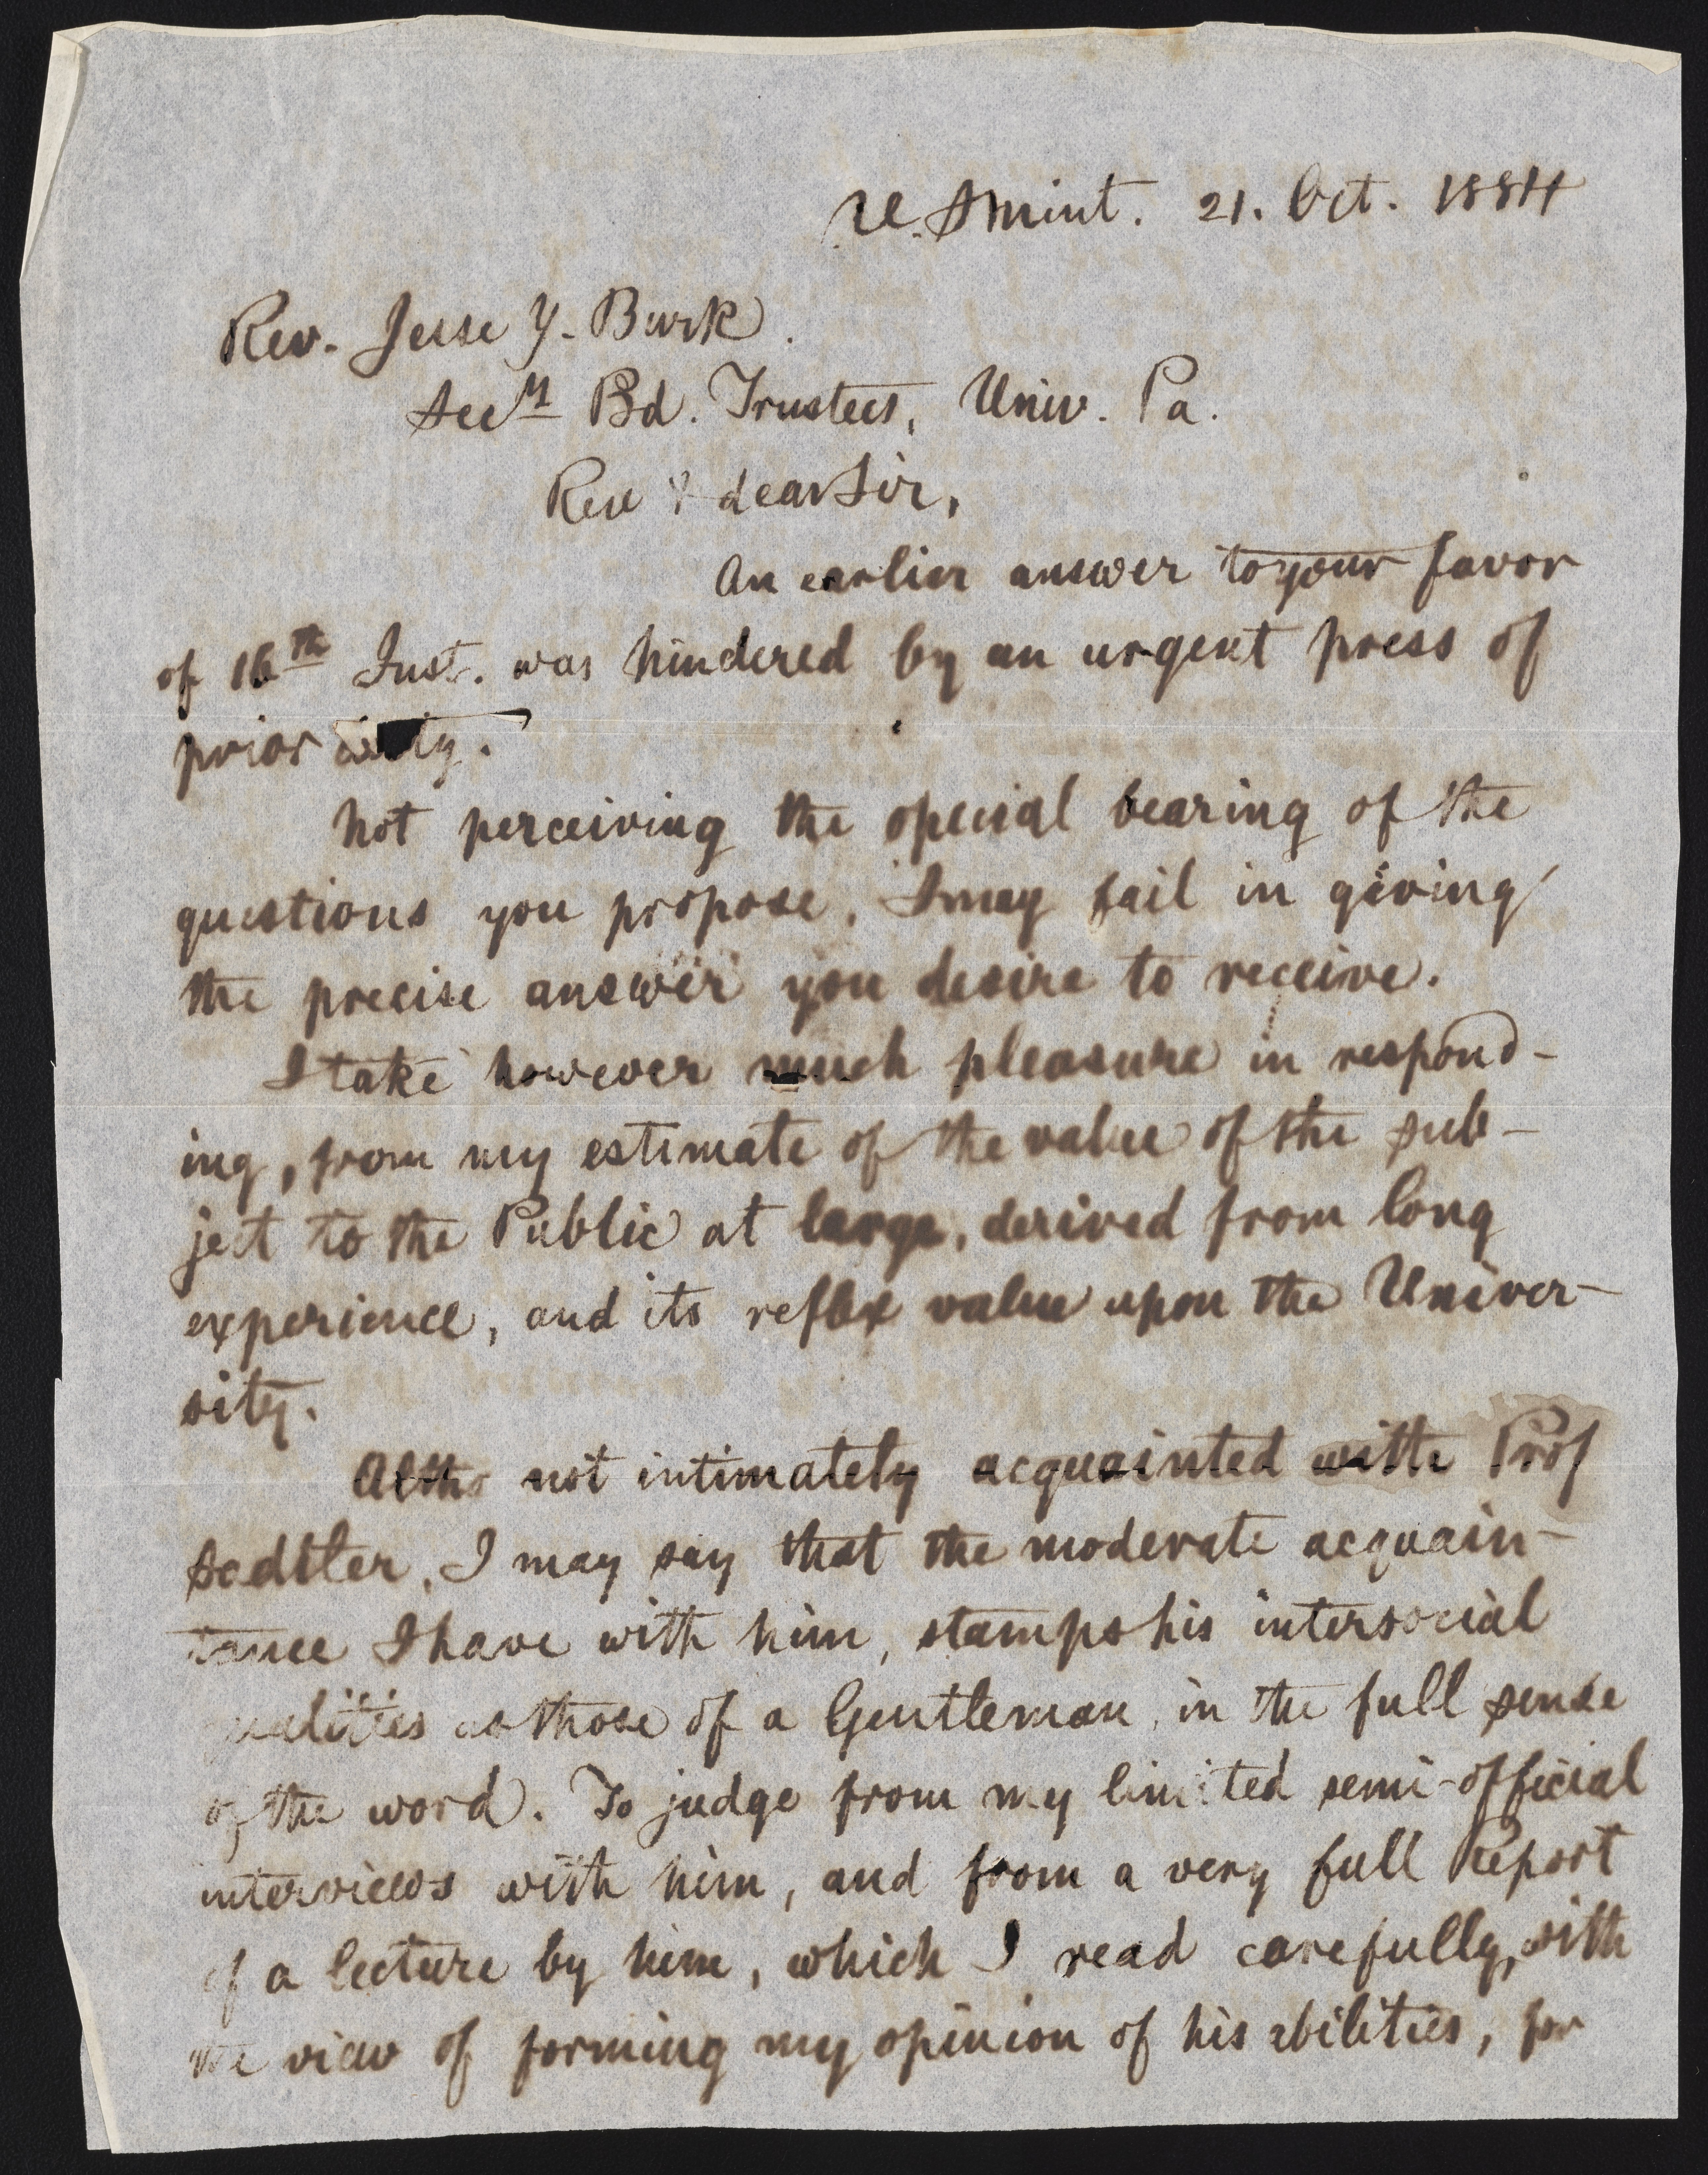 U.S mint. 21. Oct. 1884
Rev. Jesse Y. Burk.
Secy Bd. Trustees, Univ. Pa.
Rev & dear Sir,
An earlier answer to your favor
of 16th Inst. was hindered by an urgent press of
prior
Not perceiving the special bearing of the
questions you propose, I may fail in giving
the precise answer you desire to receive.
I take however much pleasure in respond-
ing, from my estimate of the value of the sub-
ject to the Public at large, derived from long
experience, and its reflex value upon the Univer-
sity.
Altho not intimately acquainted with Prof
Sadtler, I may say that the moderate acquain-
tance I have with him, stamps his intersocial
qualities as those of a Gentleman, in the full sense
of the word. To judge from my limited semi-official
interviews with him, and from a very full Report
of a lecture by him, which I read carefully, with
the view of forming my opinion of his abilities, for